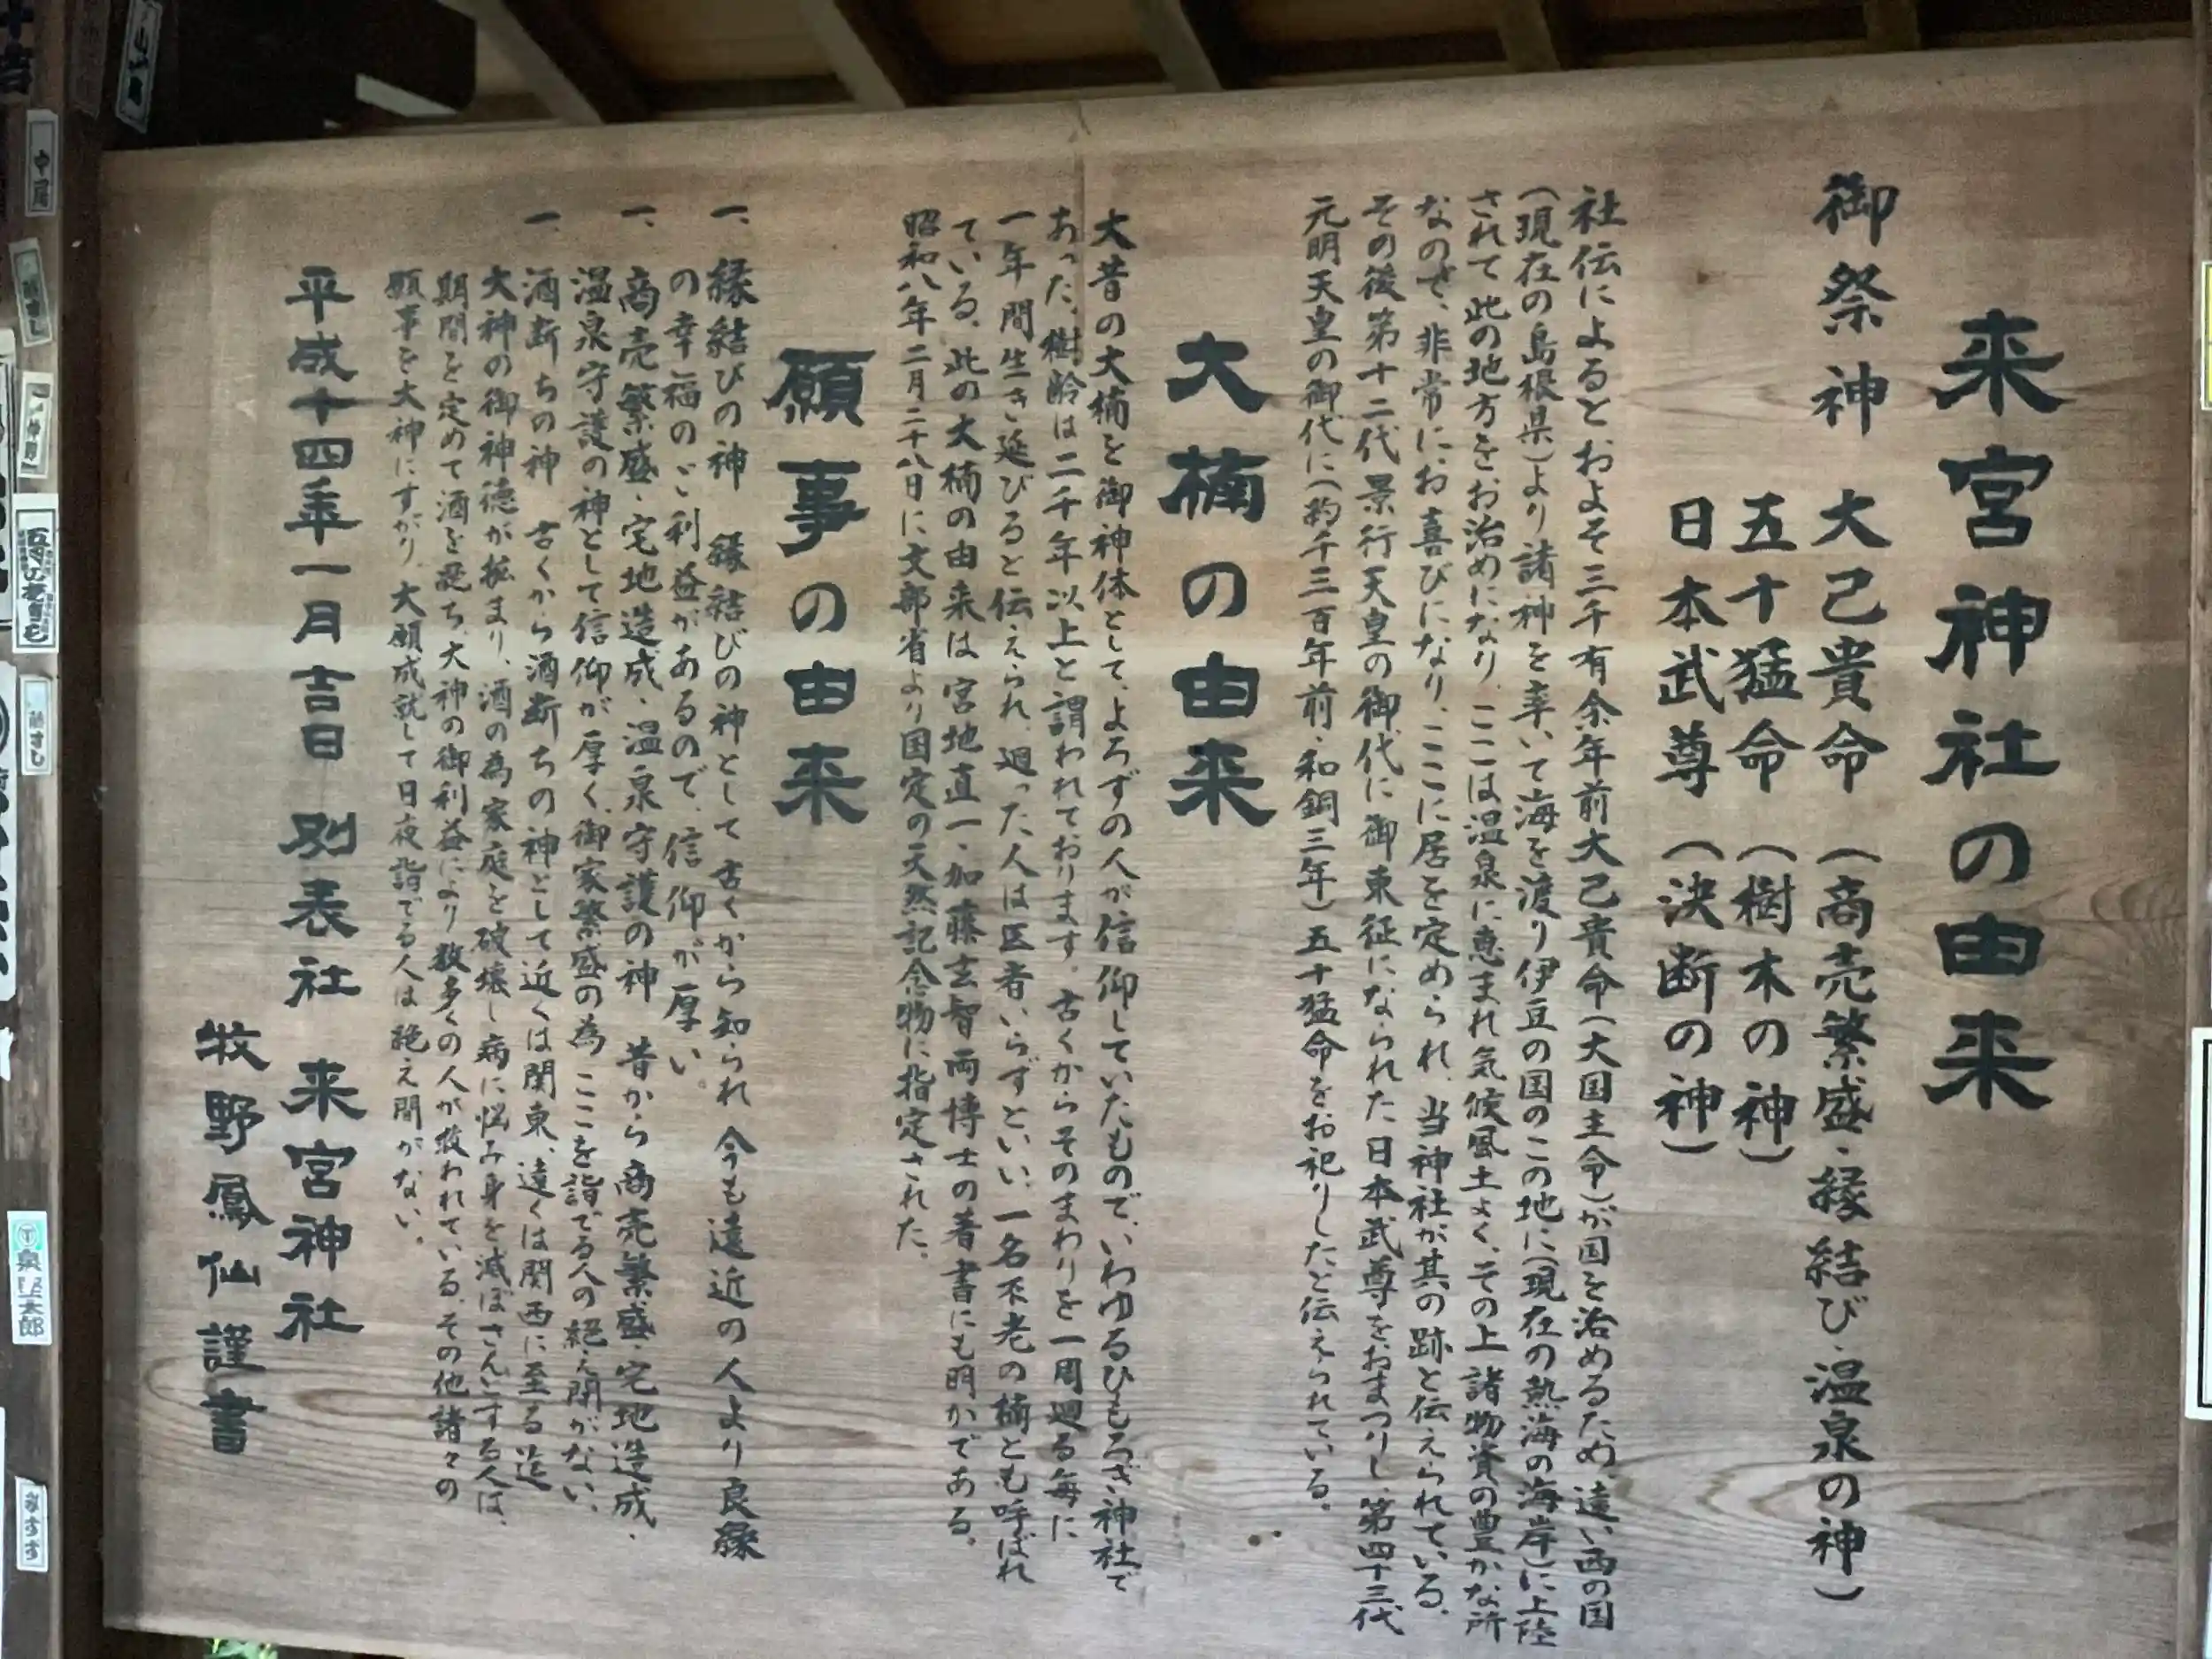 来宮神社の由来
御祭神 大己貴命(商売繁盛・縁結び・温泉の神)
五十猛命(樹木の神)
日本武尊(決断の神)
社伝によるとおよそ三千有余年前大己貴命(大国主命)が国を治めるため、遠い西の国
(現在の島根県)より諸神を率いて海を渡り伊豆の国のこの地に(現在の熱海の海岸)に上陸
されて此の地方をお治めになり、ここは温泉に恵まれ気候風土よく、その上諸物資の豊かな所
なので、非常にお喜びになり、ここに居を定められ、当神社が其の跡と伝えられている。
その後第十二代景行天皇の御代に御東征になられた日本武尊をおまつりし、第四十三代
元明天皇の御代に(約千三百年前・和銅三年)五十猛命をお祀りしたと伝えられている。
大楠の由来
大昔の大楠を御神体として、よろずの人が信仰していたもので、いわゆるひもろぎ神社で
あった、樹齢は二千年以上と謂われております。古くからそのまわりを一周廻る毎に
一年間生き延びると伝えられ、廻った人は医者いらずといい、一名不老の楠とも呼ばれ
ている、此の大楠の由来は宮地直一、加藤玄智両博士の著書にも明かである。
昭和八年二月二十八日に文部省より国定の天然記念物に指定された。
願事の由来
一、縁結びの神 縁結びの神として古くから知られ今も遠近の人より良縁
の幸福のご利益があるので、信仰が厚い。
一、商売繁盛・宅地造成・温泉守護の神 昔から商売繁盛・宅地造成・
温泉守護の神として信仰が厚く、御家繁盛の為ここを詣でる人の絶え間がない、
一、酒断ちの神 古くから酒断ちの神として近くは関東、遠くは関西に至る迄
大神の御神徳が拡まり、酒の為家庭を破壊し病に悩み身を滅ぼさんとする人は、
期間を定めて酒を断ち、大神の御利益により数多くの人が救われている、その他諸々の
願事を大神にすがり、大願成就して日夜詣でる人は絶え間がない。
平成十四年一月吉日 別表社 来宮神社
牧野鳳仙謹書
中尾
五寸の
泉堅太郎
みすず